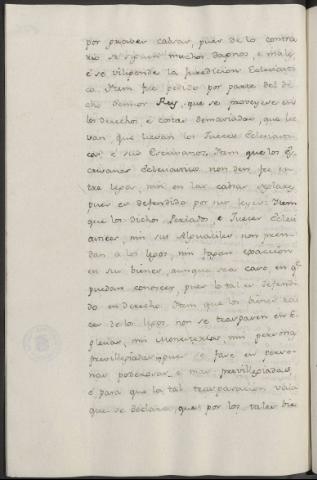 por probar casar, pues de lo contra
rio se siguen muchos daños, e males
e se vilipende la jurediccion Eclesiasti
ca. Item fue pedido por parte del di
cho Senhor Rey, que se proveyese en
los derechos, e costas demasiadas, que lle
van, que llevan los Jueces Eclesiasti
cos, e sus Escrivanos. Item que los Es
crivanos Eclesiasticos non den fee en
tre legos, nin en las causas seglares
pues es defendido por sus leyes: Item
que los dichos Perlados, e Jueces Eclesi
asticos, nin sus Alguaciles non pren
dan a los legos, nin fagan execucion
en sus bienes, aunque sea caso, en qe
puedan conocer, pues lo tal es defendi
do en derecho. Item que los bienes rai
ces de los legos, non se traspasen en E
glesias, nin Monesterios, nin personas
previllegiadas, pues se face en perso
nas poderosas, e mas previllegiadas,
e para que la tal traspasacion vala
que se declare, que por los tales bie